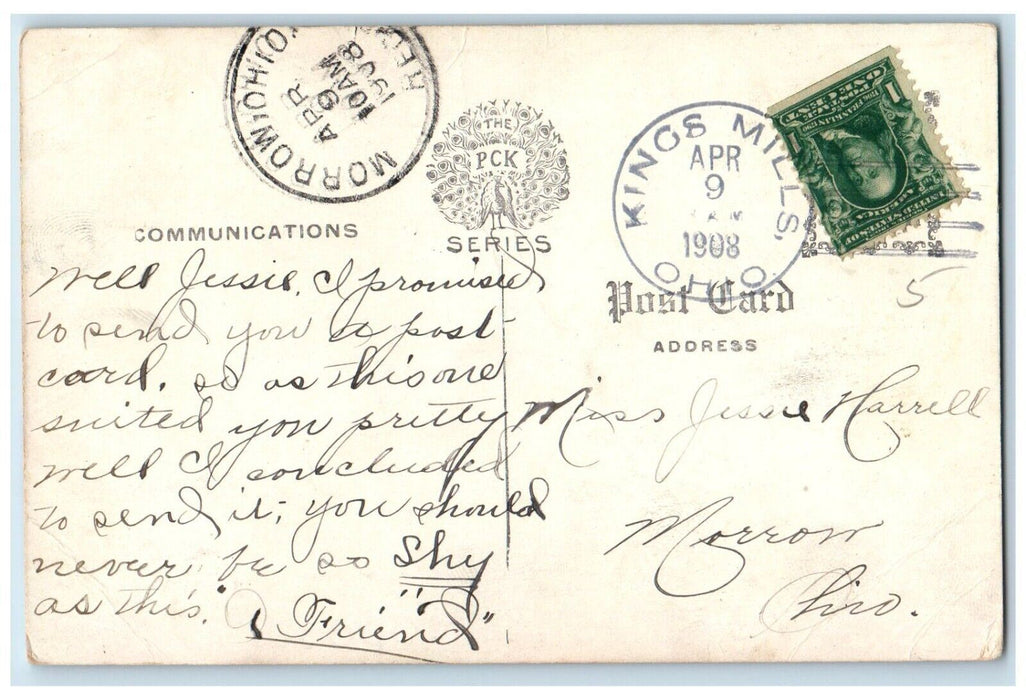 MORROW, OHIO
APR
9
10AM
1908
THE
PCK
SERIES
KINGS MILLS,
APR
9
1908
OHIO
1 1
ONE CENT
POSTAGE
UNITED STATES OF
AMERICA
5
COMMUNICATIONS
Post Card
ADDRESS
Well Jessie, I promised
to send you a post
card. so as this one
suited you pretty
well I concluded
to send it; you should
never be so Shy
as this.
A "Friend"
Miss Jessie Harrell
Morrow
Ohio.